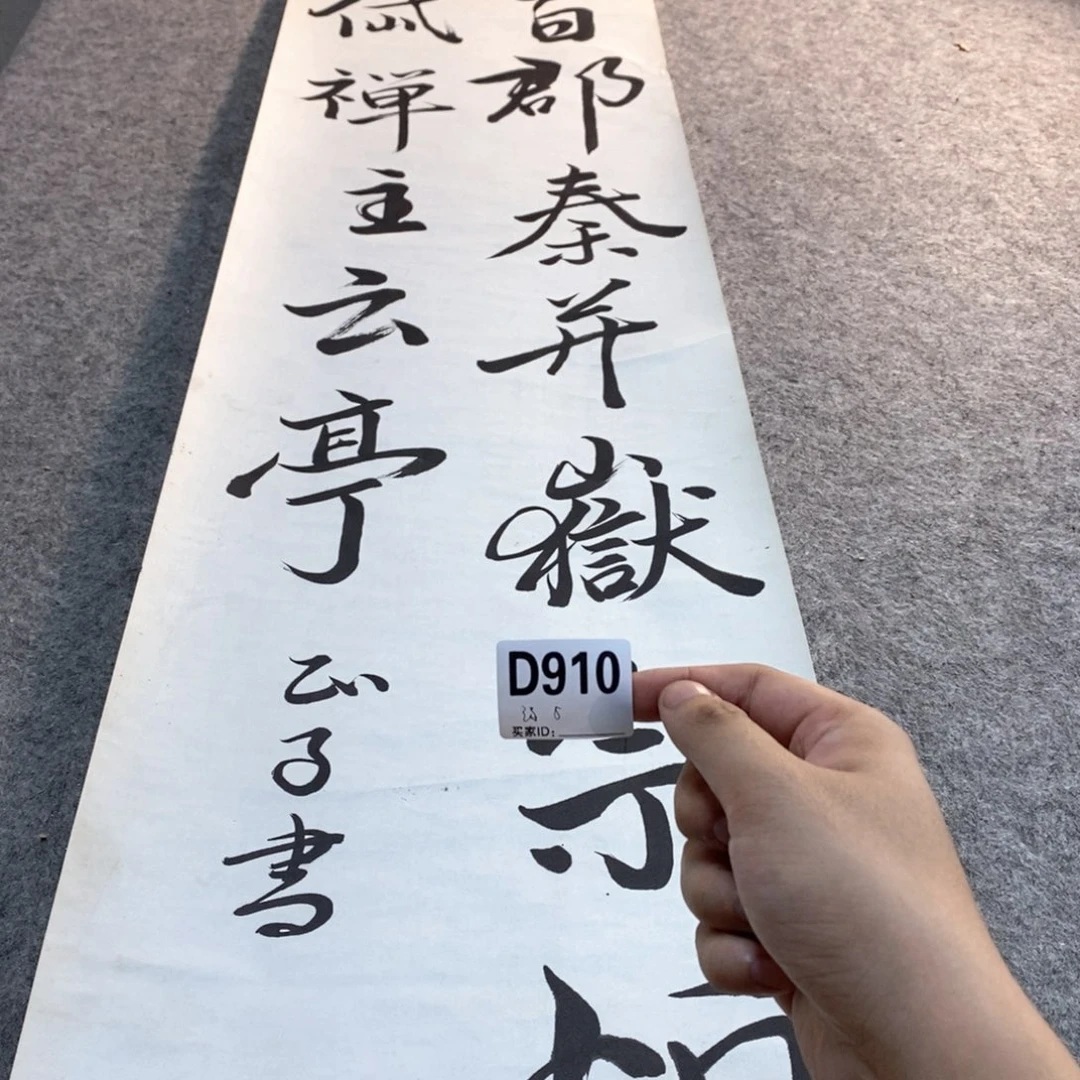 百郡秦并嶽宗
禅主云亭
子書
D910
买家ID: